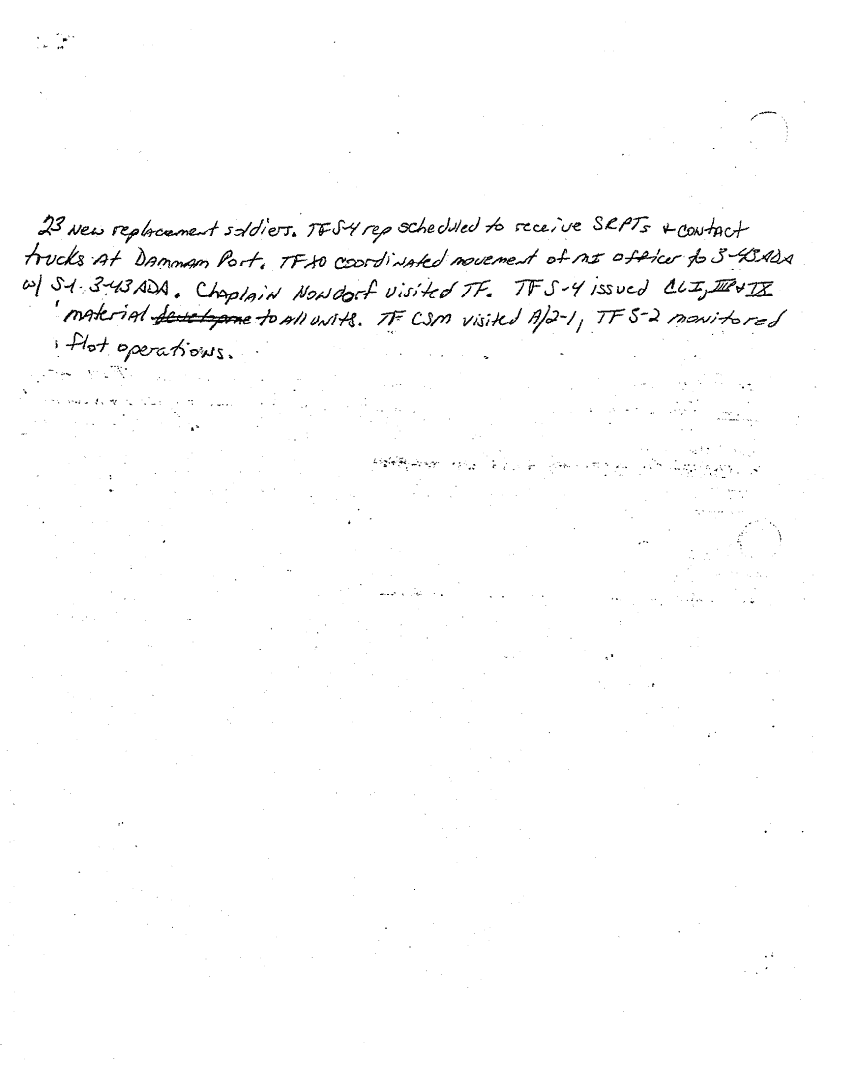 23 New replacement soldiers. TF S-4 rep scheduled to receive SRPTs + contact
trucks at Dammam Port. TF XO coordinated movement of MI officer to 3-43 ADA
w/ S-1 3-43 ADA. Chaplain Nondorf visited TF. TF S-4 issued CL I, III & IX
material to all units. TF CSM visited A/2-1, TF S-2 monitored
flot operations.